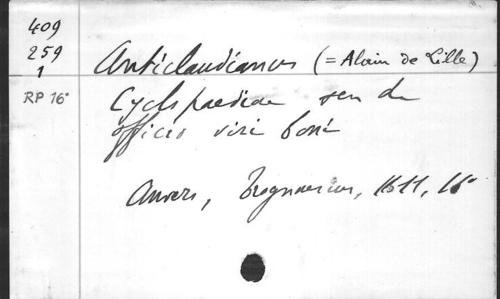 409
259
1
RP 16°
Anticlaudianus (= Alain de Lille)
Cyclopaediae seu de
officio viri boni
Anvers, Trognaesius, 1611, 16°